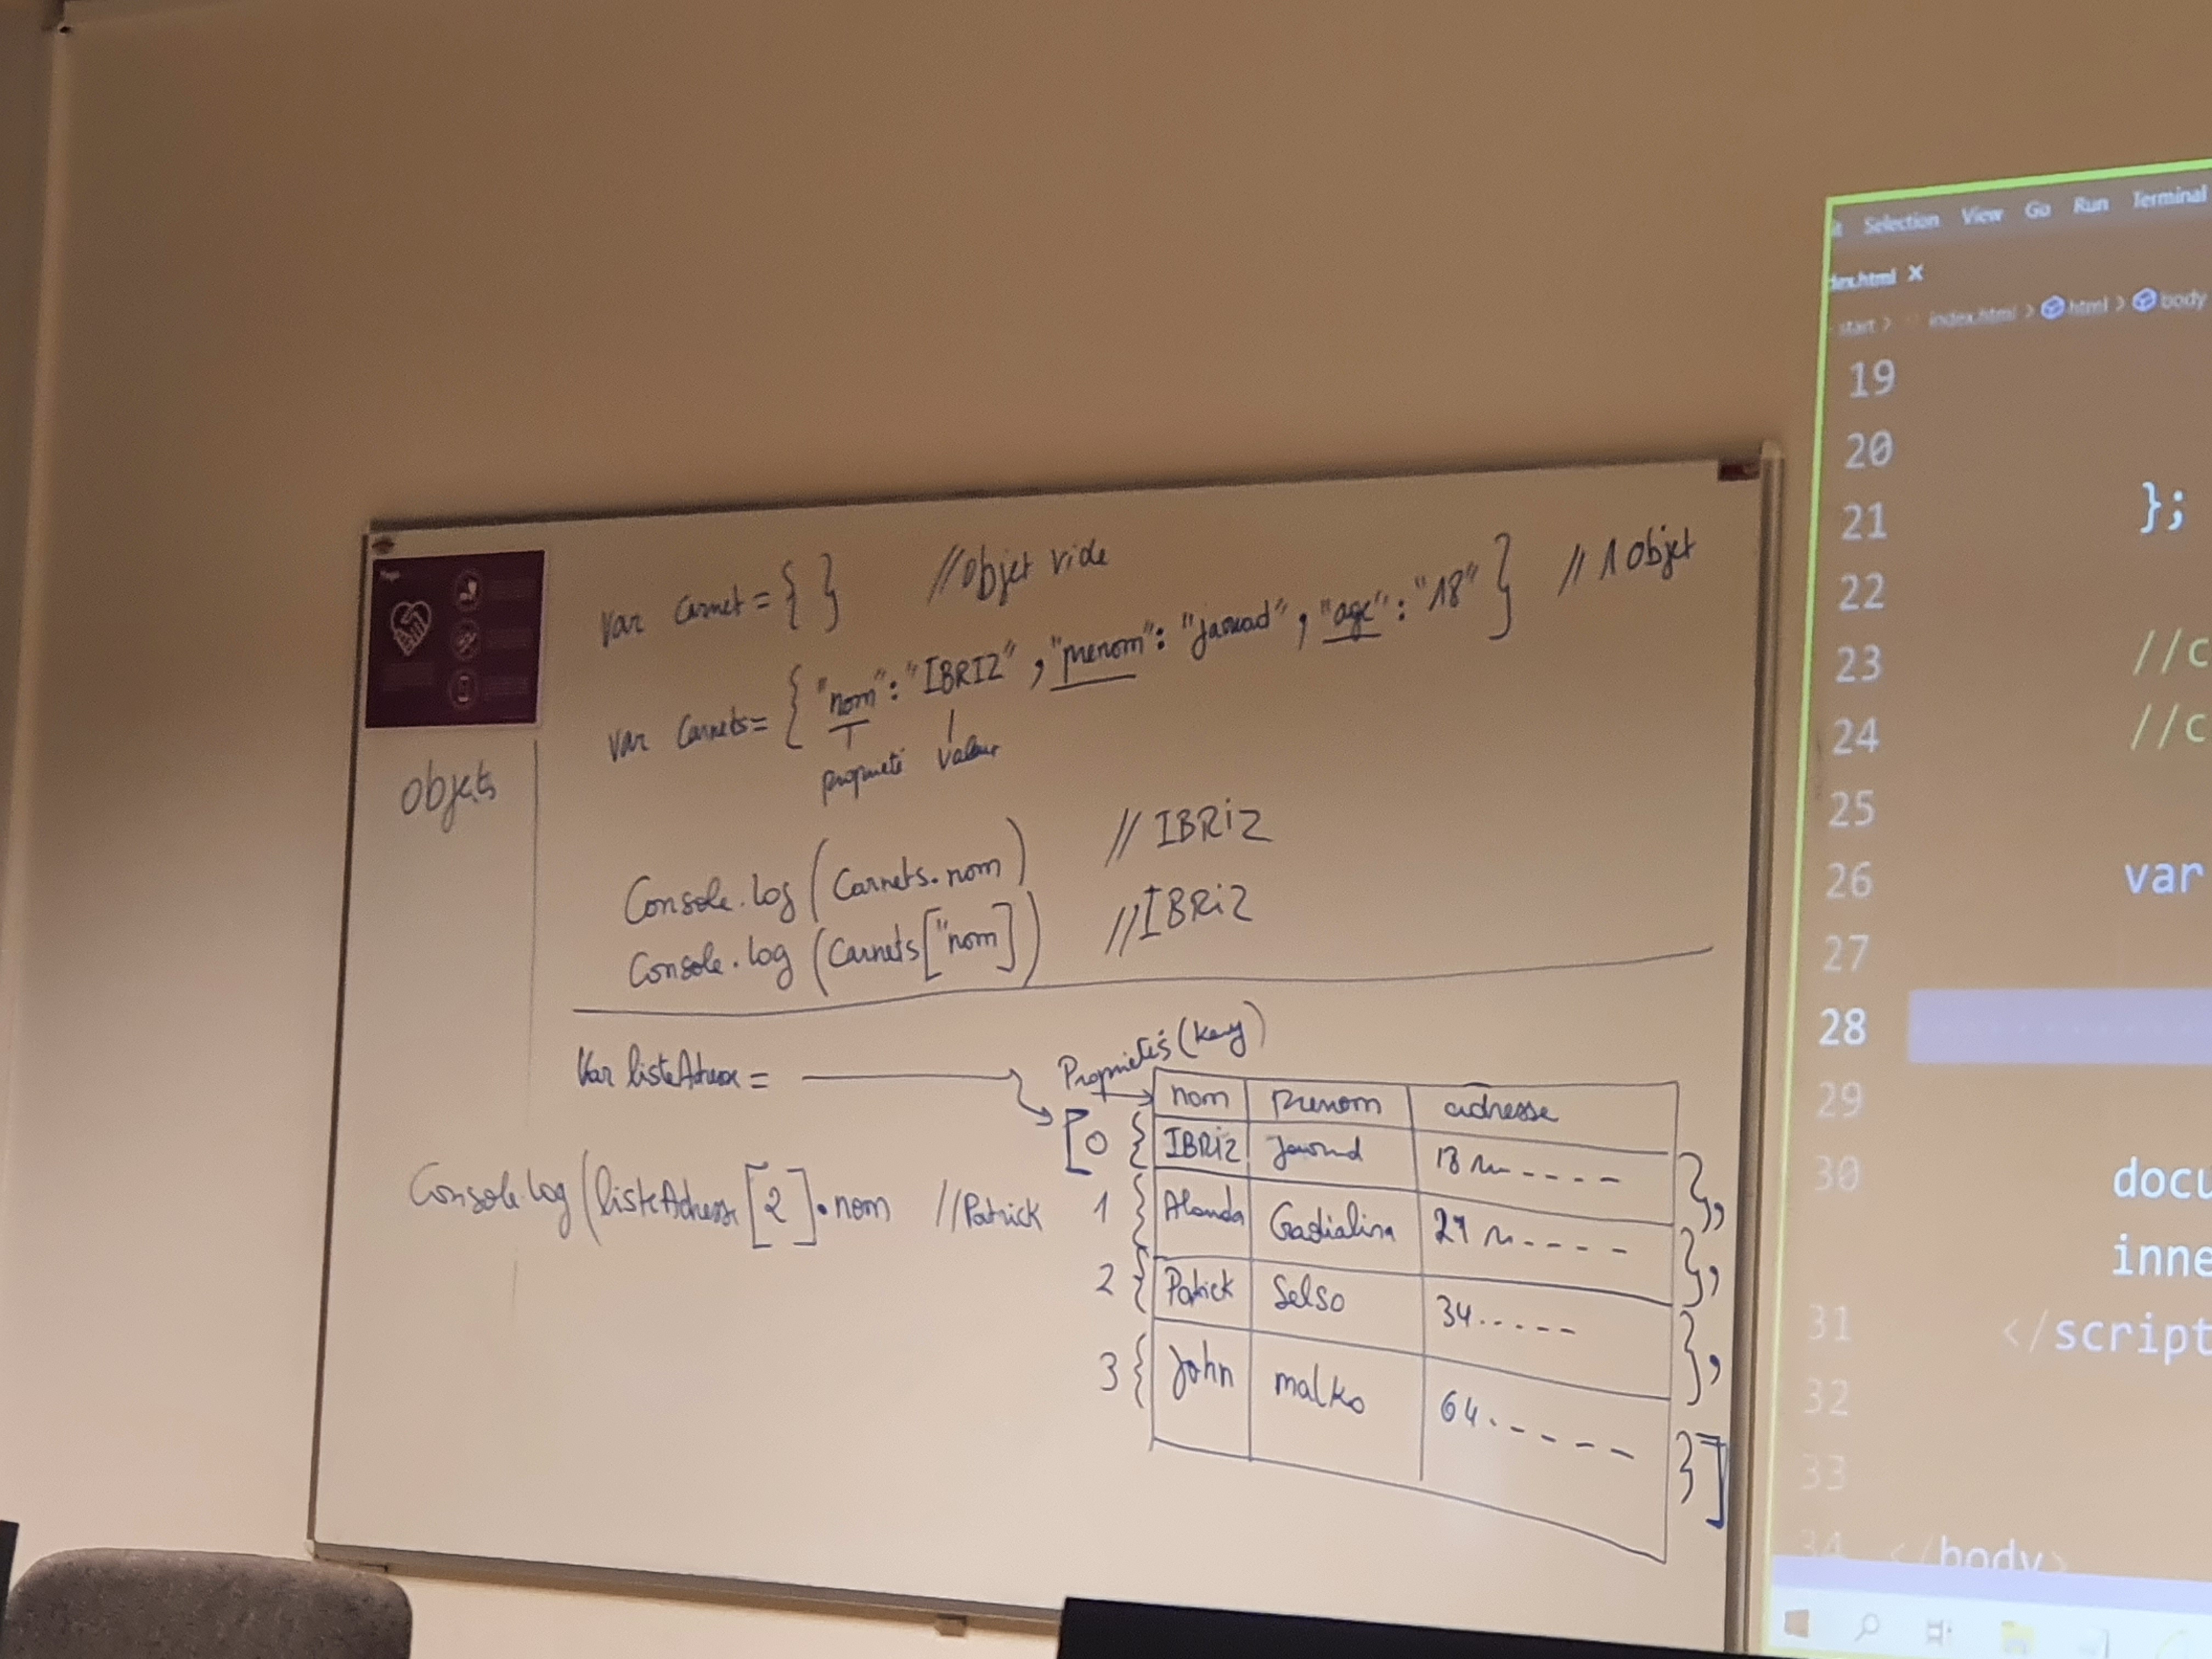 var Carnet = { } //objet vide
var Carnets= { "nom":"IBRIZ" , "prenom": "jawad" , "age": "18" } // 1 objet
propriété valeur
objets
Console.log (Carnets.nom) // IBRIZ
Console.log (Carnets["nom]) //IBRIZ
Var listeAdresse =
Proprietés (key)
nom prenom adresse
[0 { IBRIZ Jawad 18 },
1 { Gadialina 27 },
2 { Patrick Selso 34..--- },
3 { John malko 64.----- }]
Console.log (listeAdresse [2].nom //Patrick
Selection View Go Run Terminal
dex.html X
start > index.html > html > body
19
20
21 };
22
23 //c
24 //c
25
26 var
27
28
29
30 docu
inne
31 </script
32
33
34 </body>